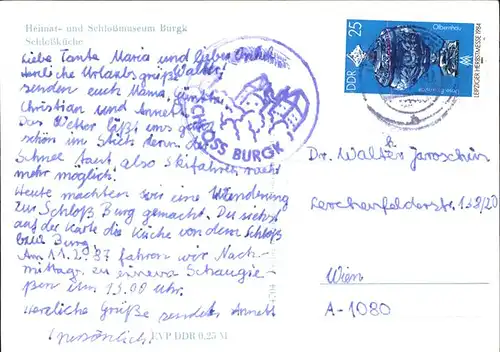 Heimat- und Schloßmuseum Burgk
Schloßküche
Liebe Tante Maria und lieber Onkel
Walter!
Herzliche Urlaubsgrüße
senden euch Mama, Günther
Christian und Annett.
Das Wetter läßt uns ganz
schön im Stich denn der
Schnee taut, also Skifahren nicht
mehr möglich.
Heute machten wir eine Wanderung
zur Schloß Burg gemacht. Du siehst
auf der Karte die Küche von dem Schloß
Burg.
Am 11.2.87 fahren wir Nach-
mittags zu einem Schaugie-
ßen um 15.00 Uhr.
Herzliche Grüße sendet Annett
(persönlich)
EVP DDR 0,25 M
SCHLOSS BURGK
DDR 25
LEIPZIGER HERBSTMESSE 1984
Dr. Walter Jaroschin
Lerchenfelderstr. 138/20
Wien
A-1080